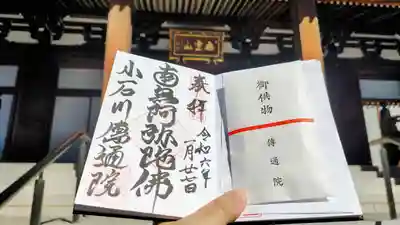 奉拝
令和六年
一月廿七日
南無阿弥陀佛
小石川
傳通院
御供物
傳通院